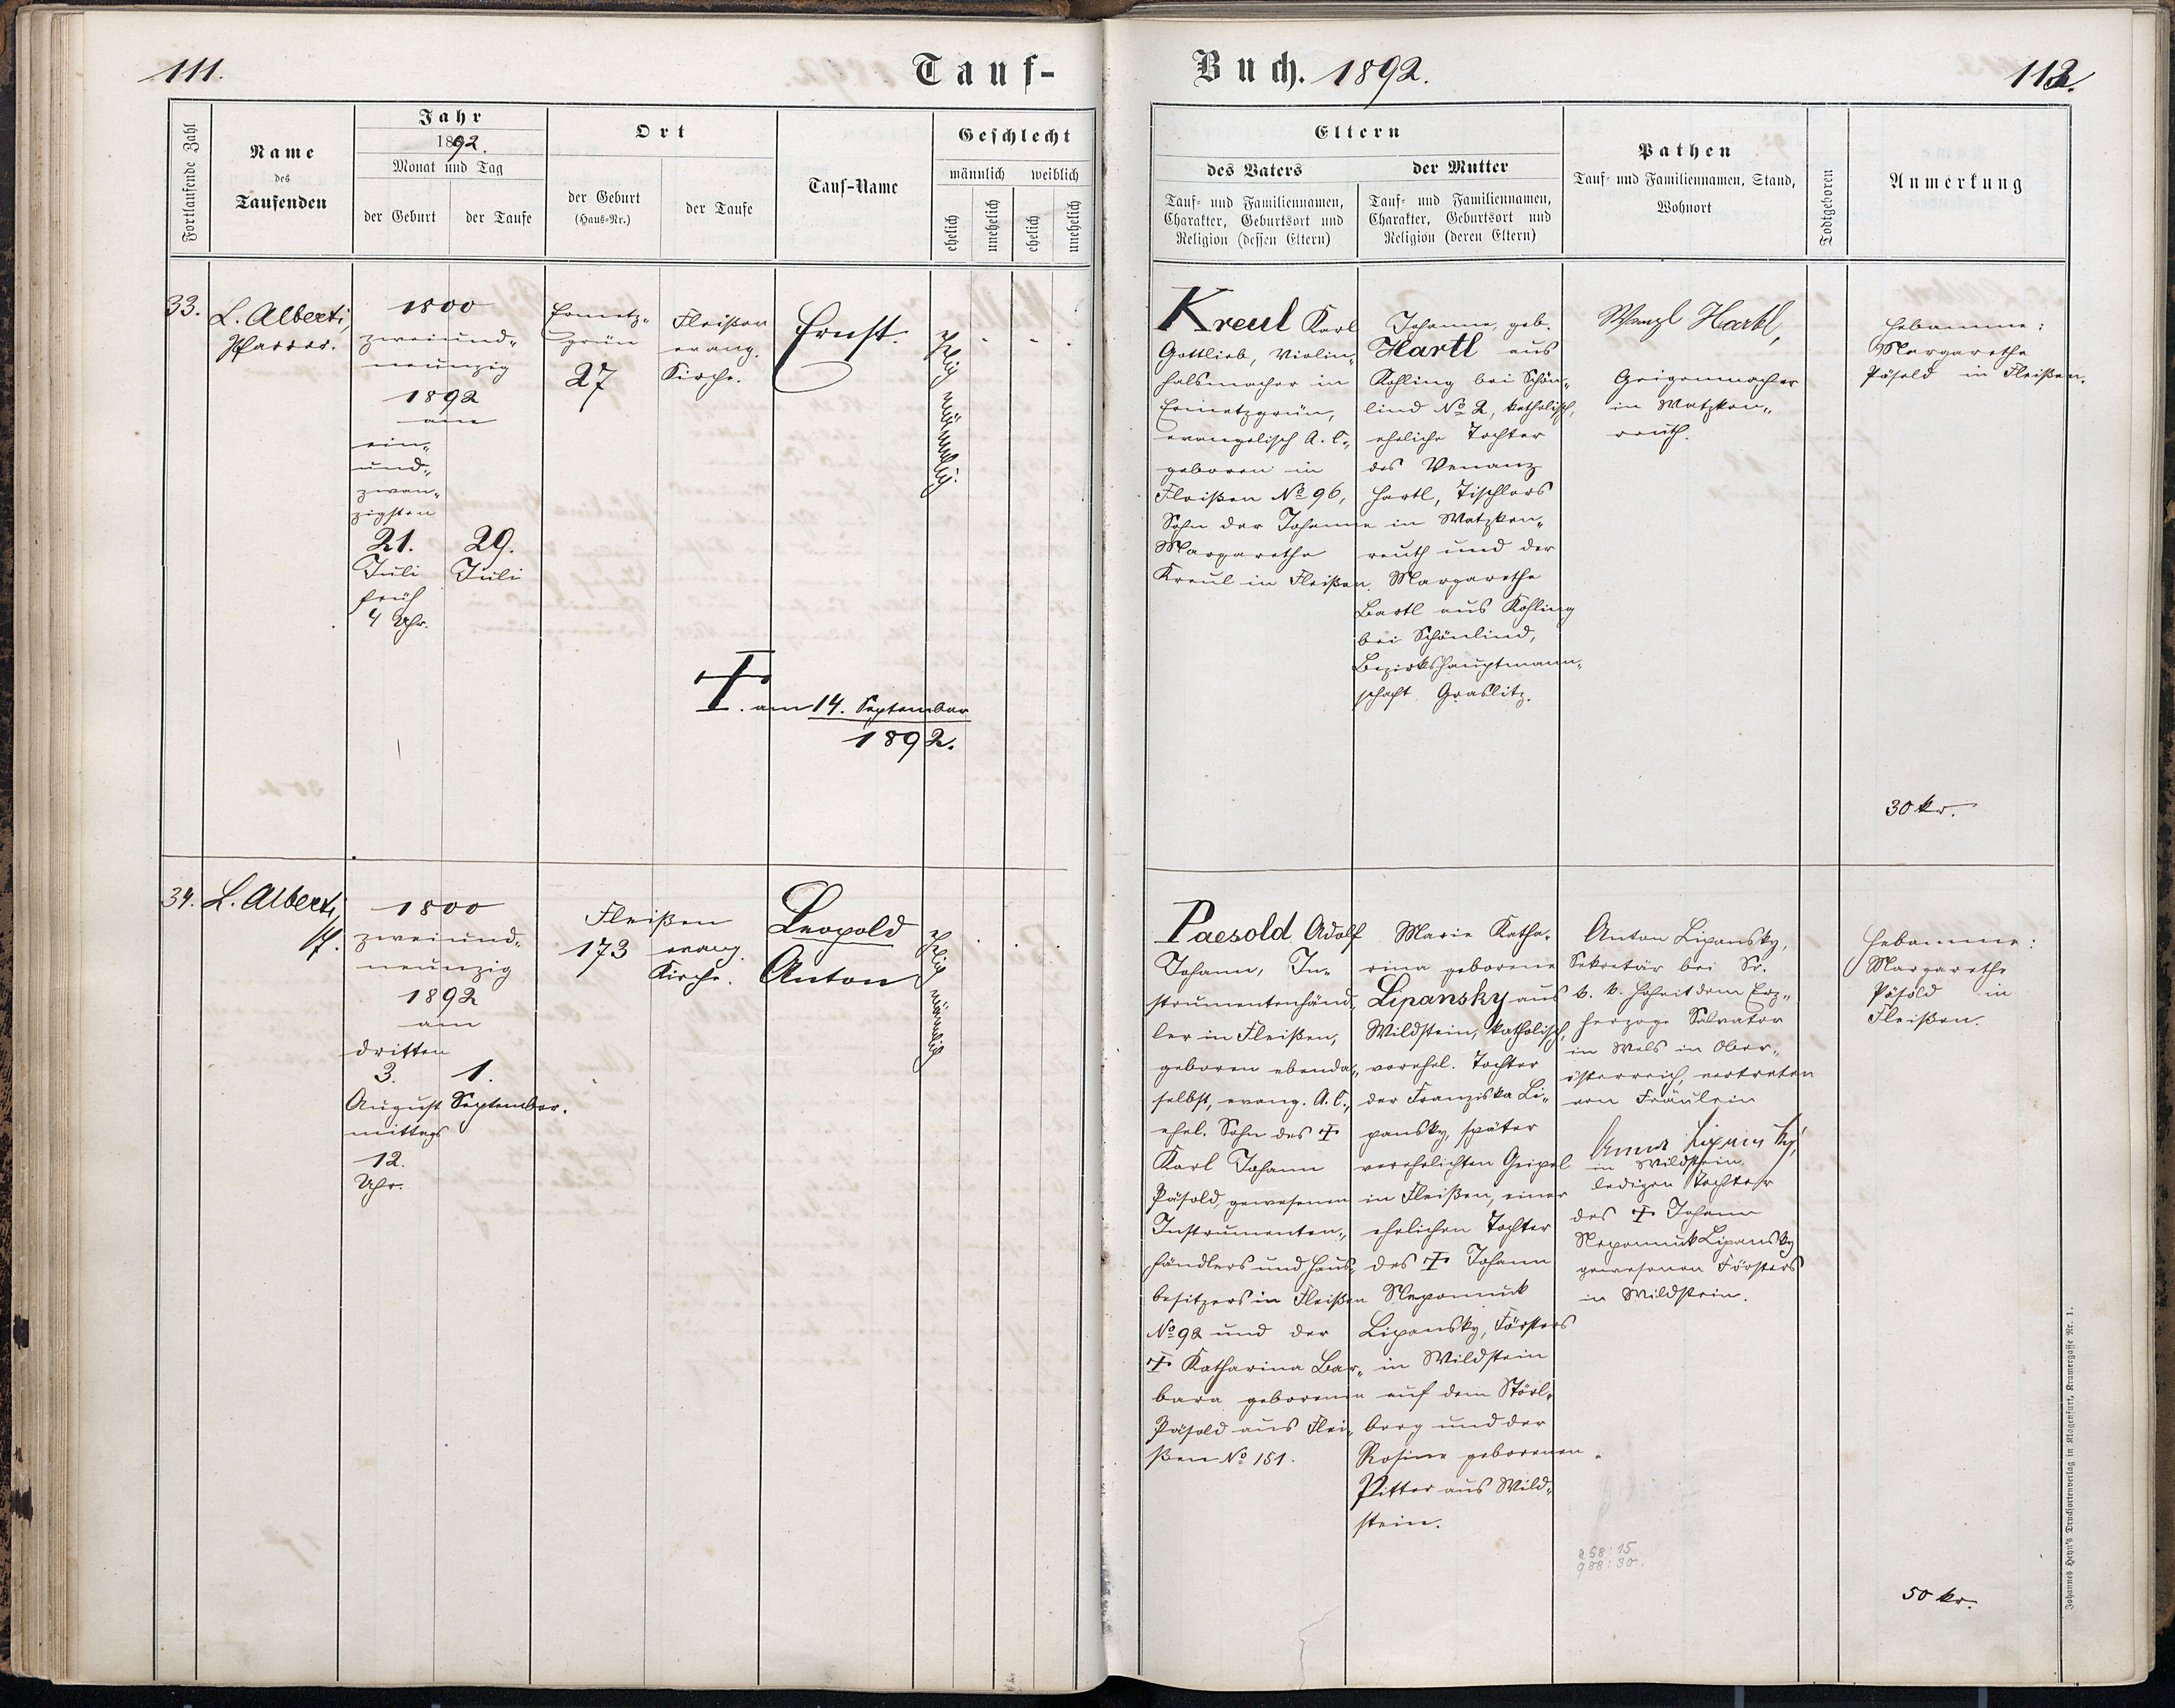 111.
Tauf-
Buch. 1892.
112.
Fortlaufende Zahl
Name
des
Taufenden
Jahr
1892.
Monat und Tag
der Geburt
der Taufe
Ort
der Geburt
(Haus-Nr.)
der Taufe
Tauf-Name
Geschlecht
männlich
weiblich
ehelich
unehelich
ehelich
unehelich
Eltern
des Vaters
Tauf- und Familiennamen,
Charakter, Geburtsort und
Religion (dessen Eltern)
der Mutter
Tauf- und Familiennamen,
Charakter, Geburtsort und
Religion (deren Eltern)
Pathen
Tauf- und Familiennamen, Stand,
Wohnort
Todtgeboren
Anmerkung
33.
L. Alberti,
Pfarrer.
1800
zweiund-
neunzig
1892
am
ein-
und-
zwan-
zigsten
21.
Juli
früh
4 Uhr.
29.
Juli
Ermetz-
grün
27
Fleißen
evang.
Kirche.
Ernst.
ehelich männlich.
† am 14. September
1892.
Kreul Karl
Gottlieb, Violin-
halsmacher in
Ermetzgrün,
evangelisch A. C.,
geboren in
Fleißen No 96,
Sohn der Johanne
Margarethe
Kreul in Fleißen.
Johanne, geb.
Hartl aus
Kohling bei Schön-
lind No 2, katholisch,
eheliche Tochter
des Venanz
Hartl, Tischlers
in Watzken-
reuth und der
Margarethe
Bartl aus Kohling
bei Schönlind,
Bezirkshauptmann-
schaft Graslitz.
Wenzl Hartl,
Geigenmacher
in Watzken-
reuth.
Hebamme:
Margarethe
Päsold in Fleißen.
30 kr.
34.
L. Alberti,
Pf.
1800
zweiund-
neunzig
1892
am
dritten
3.
August
mittags
12.
Uhr.
1.
September.
Fleißen
173
evang.
Kirche.
Leopold
Anton
ehelich männlich
Paesold Adolf
Johann, In-
strumentenhänd-
ler in Fleißen,
geboren ebenda-
selbst, evang. A. C.,
ehel. Sohn des †
Karl Johann
Päsold, gewesenen
Instrumenten-
händlers und Haus-
besitzers in Fleißen
No 92 und der
† Katharina Bar-
bara geborenen
Päsold aus Flei-
ßen No 151.
Marie Katha-
rina geborene
Lipansky aus
Wildstein, katholisch,
vorehel. Tochter
der Franziska Li-
pansky, später
verehelichten Geipel
in Fleißen, einer
ehelichen Tochter
des † Johann
Nepomuk
Lipansky, Försters
in Wildstein
auf dem Störl-
berg und der
Rosine geborenen
Pitter aus Wild-
stein.
Anton Lipansky,
Sekretär bei Sr.
k. k. Hoheit dem Erz-
herzoge Salvator
in Wels in Ober-
österreich, vertreten
von Fräulein
Anna Lipansky,
in Wildstein,
ledigen Tochter
des † Johann
Nepomuk Lipansky
gewesenen Försters
in Wildstein.
Hebamme:
Margarethe
Päsold in
Fleißen.
258:15
988:30.
50 kr.
Johannes Heyn's Drucksortenverlag in Klagenfurt, Kramergasse Nr. 1.